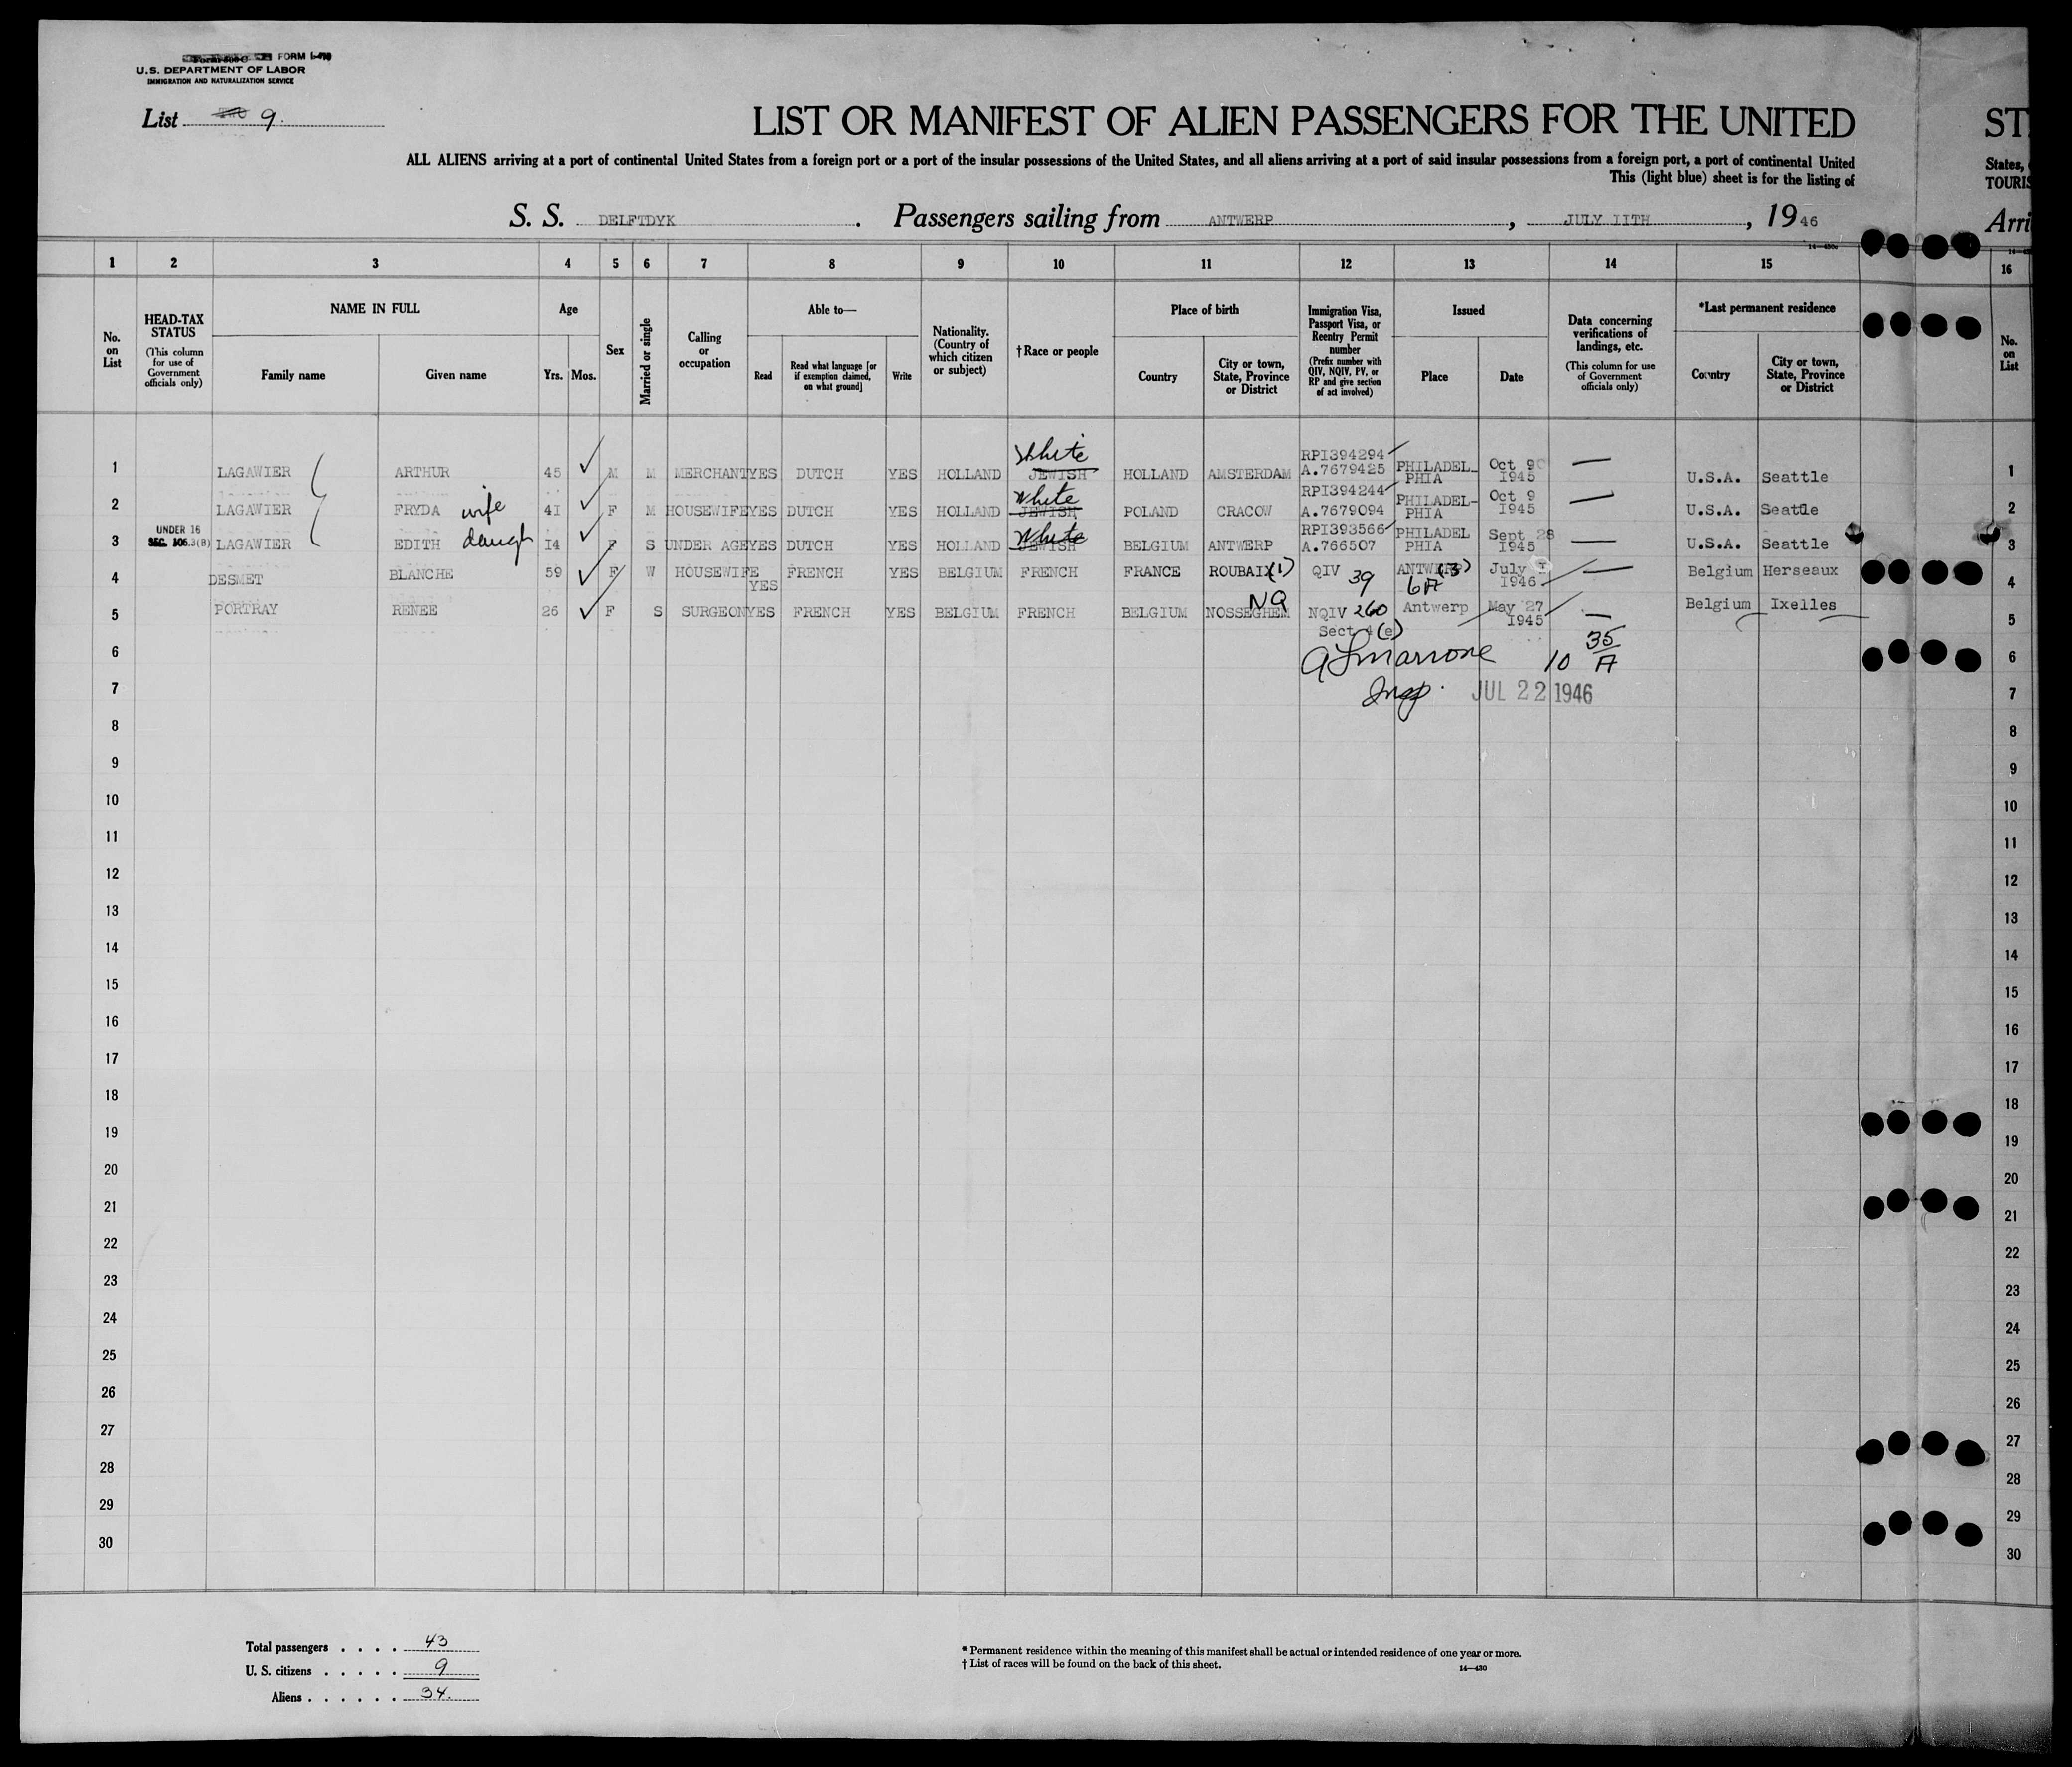 FORM I-
U.S. DEPARTMENT OF LABOR
IMMIGRATION AND NATURALIZATION SERVICE
List 9.
LIST OR MANIFEST OF ALIEN PASSENGERS FOR THE UNITED
ST
ALL ALIENS arriving at a port of continental United States from a foreign port or a port of the insular possessions of the United States, and all aliens arriving at a port of said insular possessions from a foreign port, a port of continental United
States,
This (light blue) sheet is for the listing of
TOURIS
S. S. DELFTDYK. Passengers sailing from ANTWERP, JULY IITH, 1946
Arri
1 2 3 4 5 6 7 8 9 10 11 12 13 14 15 16
No. on List
HEAD-TAX STATUS
(This column for use of Government officials only)
NAME IN FULL
Family name
Given name
Age
Yrs. Mos.
Sex
Married or single
Calling or occupation
Able to—
Read
Read what language [or if exemption claimed, on what ground]
Write
Nationality. (Country of which citizen or subject)
†Race or people
Place of birth
Country
City or town, State, Province or District
Immigration Visa, Passport Visa, or Reentry Permit number
(Prefix number with QIV, NQIV, PV, or RP and give section of act involved)
Issued
Place
Date
Data concerning verifications of landings, etc.
(This column for use of Government officials only)
*Last permanent residence
Country
City or town, State, Province or District
No. on List
1 LAGAWIER ARTHUR 45 M M MERCHANT YES DUTCH YES HOLLAND JEWISH White HOLLAND AMSTERDAM RPI394294 A.7679425 PHILADEL- PHIA Oct 9 I945 U.S.A. Seattle 1
2 LAGAWIER FRYDA wife 4I F M HOUSEWIFE YES DUTCH YES HOLLAND JEWISH White POLAND CRACOW RPI394244 A.7679094 PHILADEL- PHIA Oct 9 I945 U.S.A. Seattle 2
3 UNDER 16 SEC. 105.3(B) LAGAWIER EDITH daugh I4 F S UNDER AGE YES DUTCH YES HOLLAND JEWISH White BELGIUM ANTWERP RPI393566 A.766507 PHILADEL PHIA Sept 28 I945 U.S.A. Seattle 3
4 DESMET BLANCHE 59 F W HOUSEWIFE YES FRENCH YES BELGIUM FRENCH FRANCE ROUBAIX (1) QIV 39 ANTWERP (3) 6A July I 1946 Belgium Herseaux 4
5 PORTRAY RENEE 26 F S SURGEON YES FRENCH YES BELGIUM FRENCH BELGIUM NOSSEGHEM NQ NQIV 260 Sect 4(e) Antwerp May 27 I945 Belgium Ixelles 5
6 35 6
10 A
7 Insp. JUL 22 1946 7
8 8
9 9
10 10
11 11
12 12
13 13
14 14
15 15
16 16
17 17
18 18
19 19
20 20
21 21
22 22
23 23
24 24
25 25
26 26
27 27
28 28
29 29
30 30
Total passengers . . . . 43
U. S. citizens . . . . . 9
Aliens . . . . . . 34.
* Permanent residence within the meaning of this manifest shall be actual or intended residence of one year or more.
† List of races will be found on the back of this sheet.
14—430